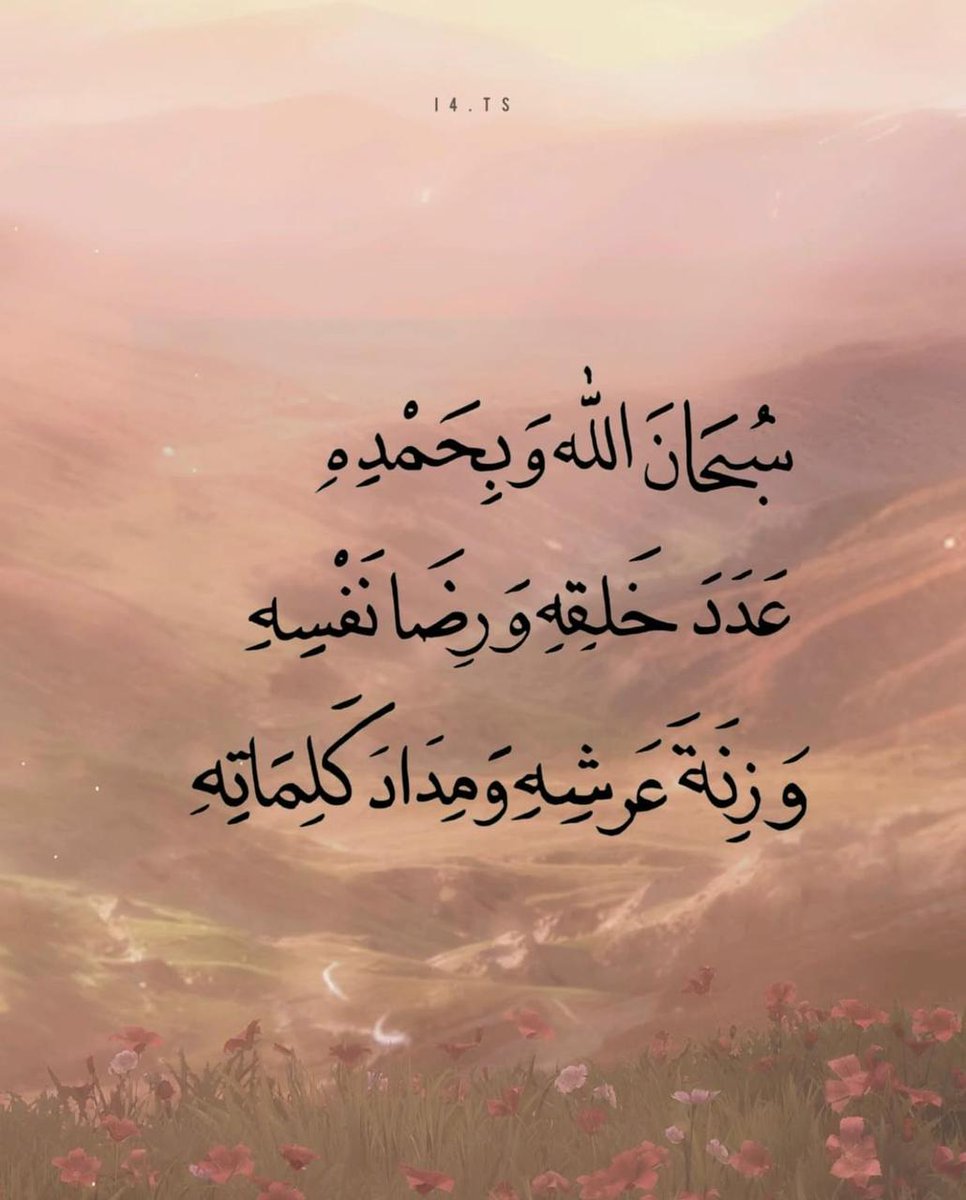 I4.TS
سُبحَانَ اللّٰه وَبِحَمْدِهِ
عَدَدَ خَلقِهِ وَرِضَا نَفْسِهِ
وَزِنَةَ عَرشِهِ وَمِدَادَ كَلِمَاتِهِ